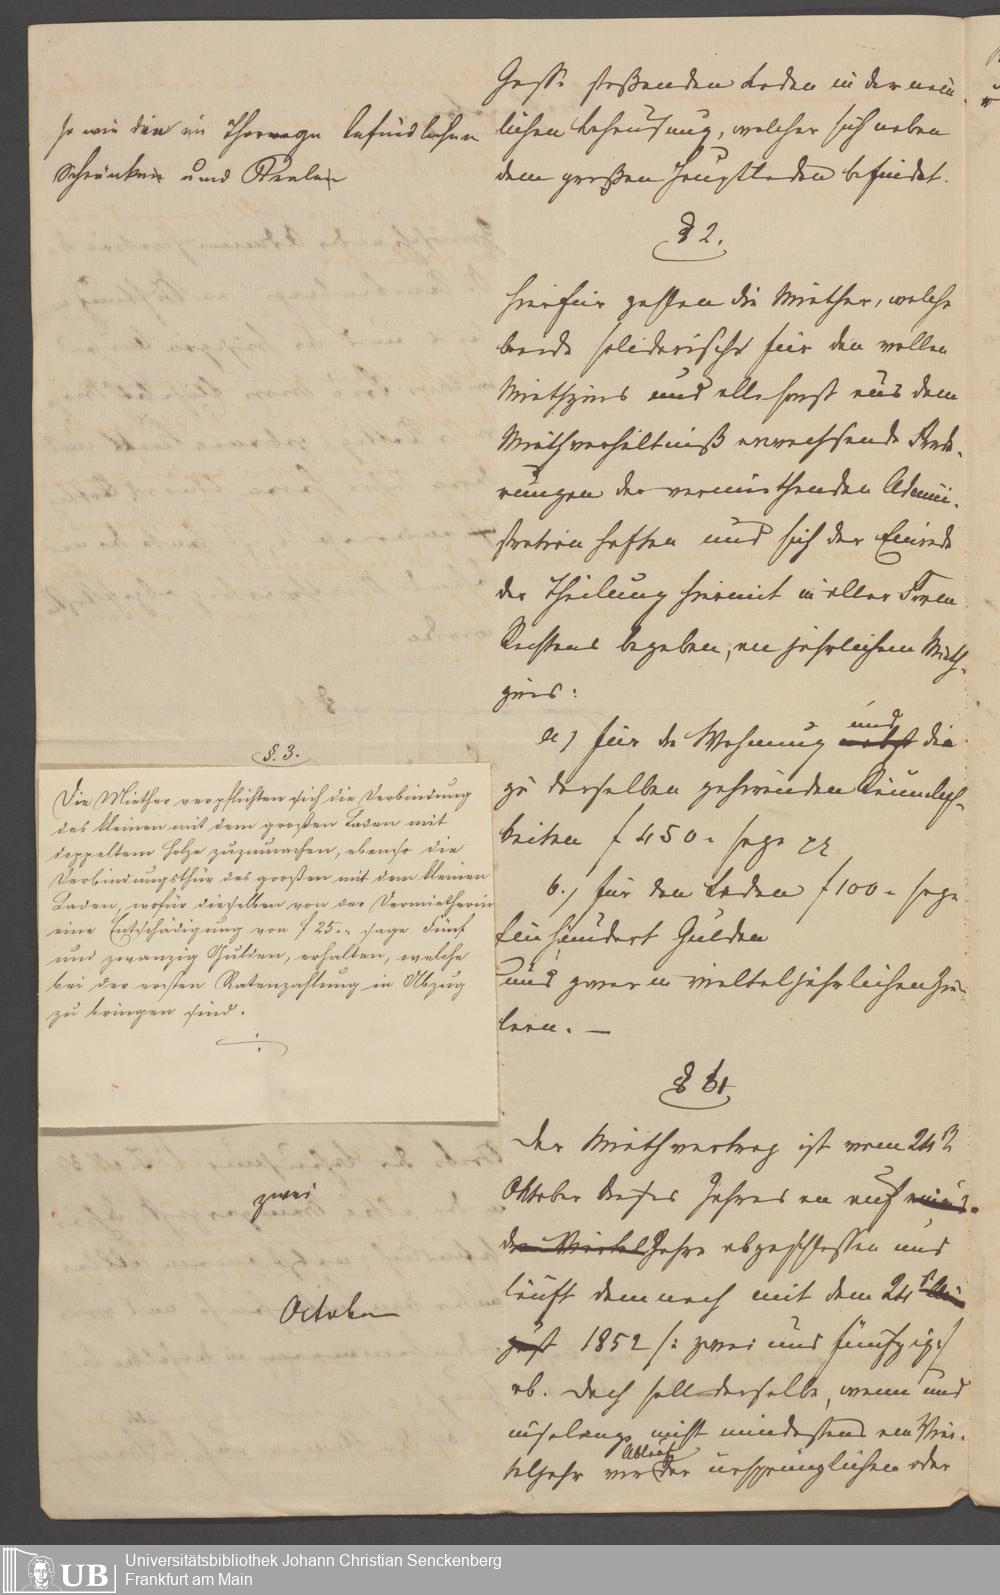 so wie den im Thorwege befindlichen
Schränken und Realen
Gasse stoßenden Laden in der nem-
lichen Behausung, welcher sich neben
dem großen Hauptladen befindet.
§ 2.
Hierfür zahlen die Miether, welche
beede solidarisch für den vollen
Miethzins und alle sonst aus dem
Miethverhältniß erwachsende Forde-
rungen der vermiethenden Admini-
stration haften und sich der Einrede
der Theilung hiermit in aller Form
Rechtens begeben, an jährlichem Mieth-
zins:
a) für die Wohnung und nebst die
zu derselben gehörenden Räumlich-
keiten f 450 " sage
b.) für den Laden f 100 " sage
Einhundert Gulden
und zwar in vierteljährlichen Zie-
lern. —
§. 3.
Die Miether verpflichten sich die Verbindung
des kleinen mit dem großen Laden mit
doppeltem Holze zuzumachen, ebenso die
Verbindungsthür des großen mit dem kleinen
Laden, wofür dieselben von der Vermietherin
eine Entschädigung von f 25." sage Fünf
und zwanzig Gulden, erhalten, welche
bei der ersten Ratenzahlung in Abzug
zu bringen sind.
§ 4
Der Miethvertrag ist vom 24
Oktober dieses Jahres an auf
zwei
Viertel Jahre abgeschlossen und
läuft demnach mit dem 24
October
1852 /: zwei und fünfzig :/
ab. Doch soll derselbe, wenn und
insolange nicht mindestens ein Vier-
teljahr vor Ablauf der ursprünglichen oder
Universitätsbibliothek Johann Christian Senckenberg
UB Frankfurt am Main